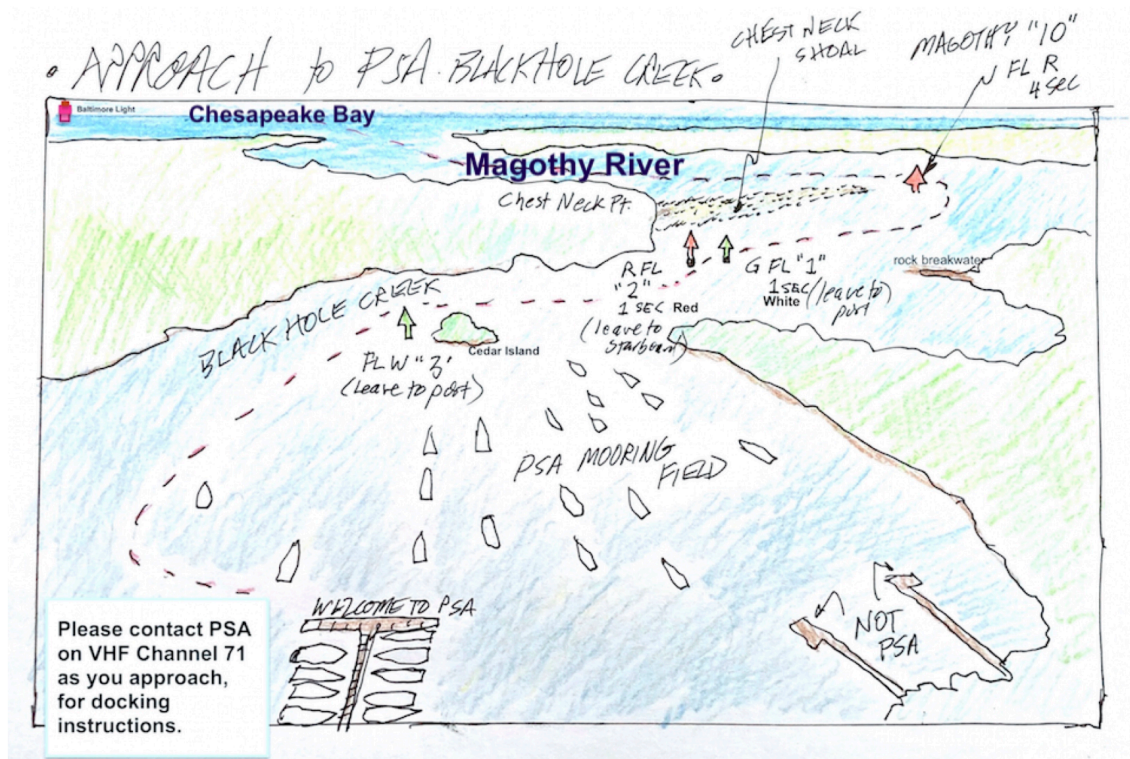 • APPROACH to PSA. BLACKHOLE CREEK.
CHEST NECK
SHOAL
MAGOTHY "10"
FL R
4 SEC
Baltimore Light
Chesapeake Bay
Magothy River
Chest Neck Pt.
rock breakwater
R FL
"2"
1 SEC Red
(leave to
starboard)
G FL "1"
1 SEC
White (leave to)
port
BLACK HOLE CREEK
Cedar Island
FL W "3"
(leave to port)
PSA MOORING
FIELD
WELCOME TO PSA
NOT
PSA
Please contact PSA
on VHF Channel 71
as you approach,
for docking
instructions.